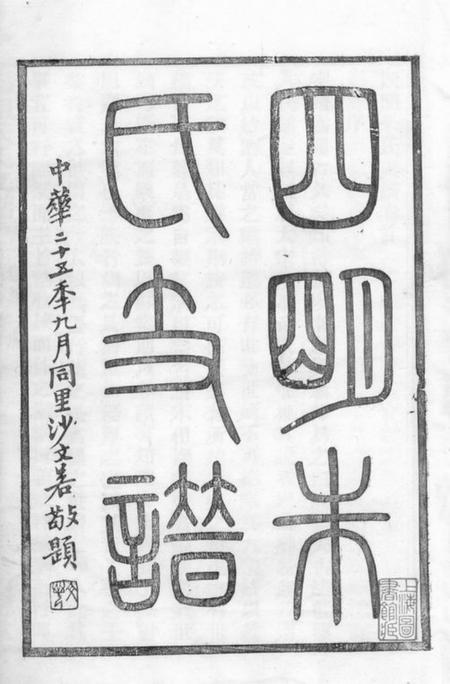 四明朱
氏支譜
中華二十五年九月同里沙文若敬題
上海圖
書館藏